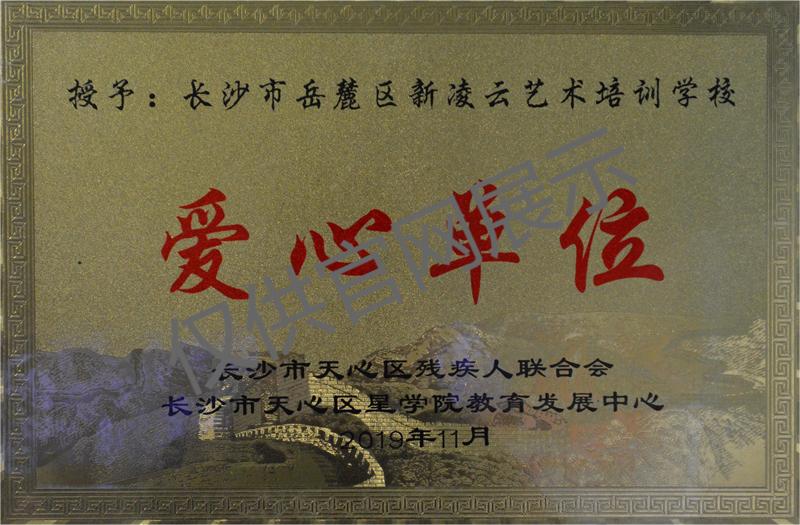 授予：长沙市岳麓区新凌云艺术培训学校
爱心单位
仅供官网展示
长沙市天心区残疾人联合会
长沙市天心区星学院教育发展中心
2019年11月